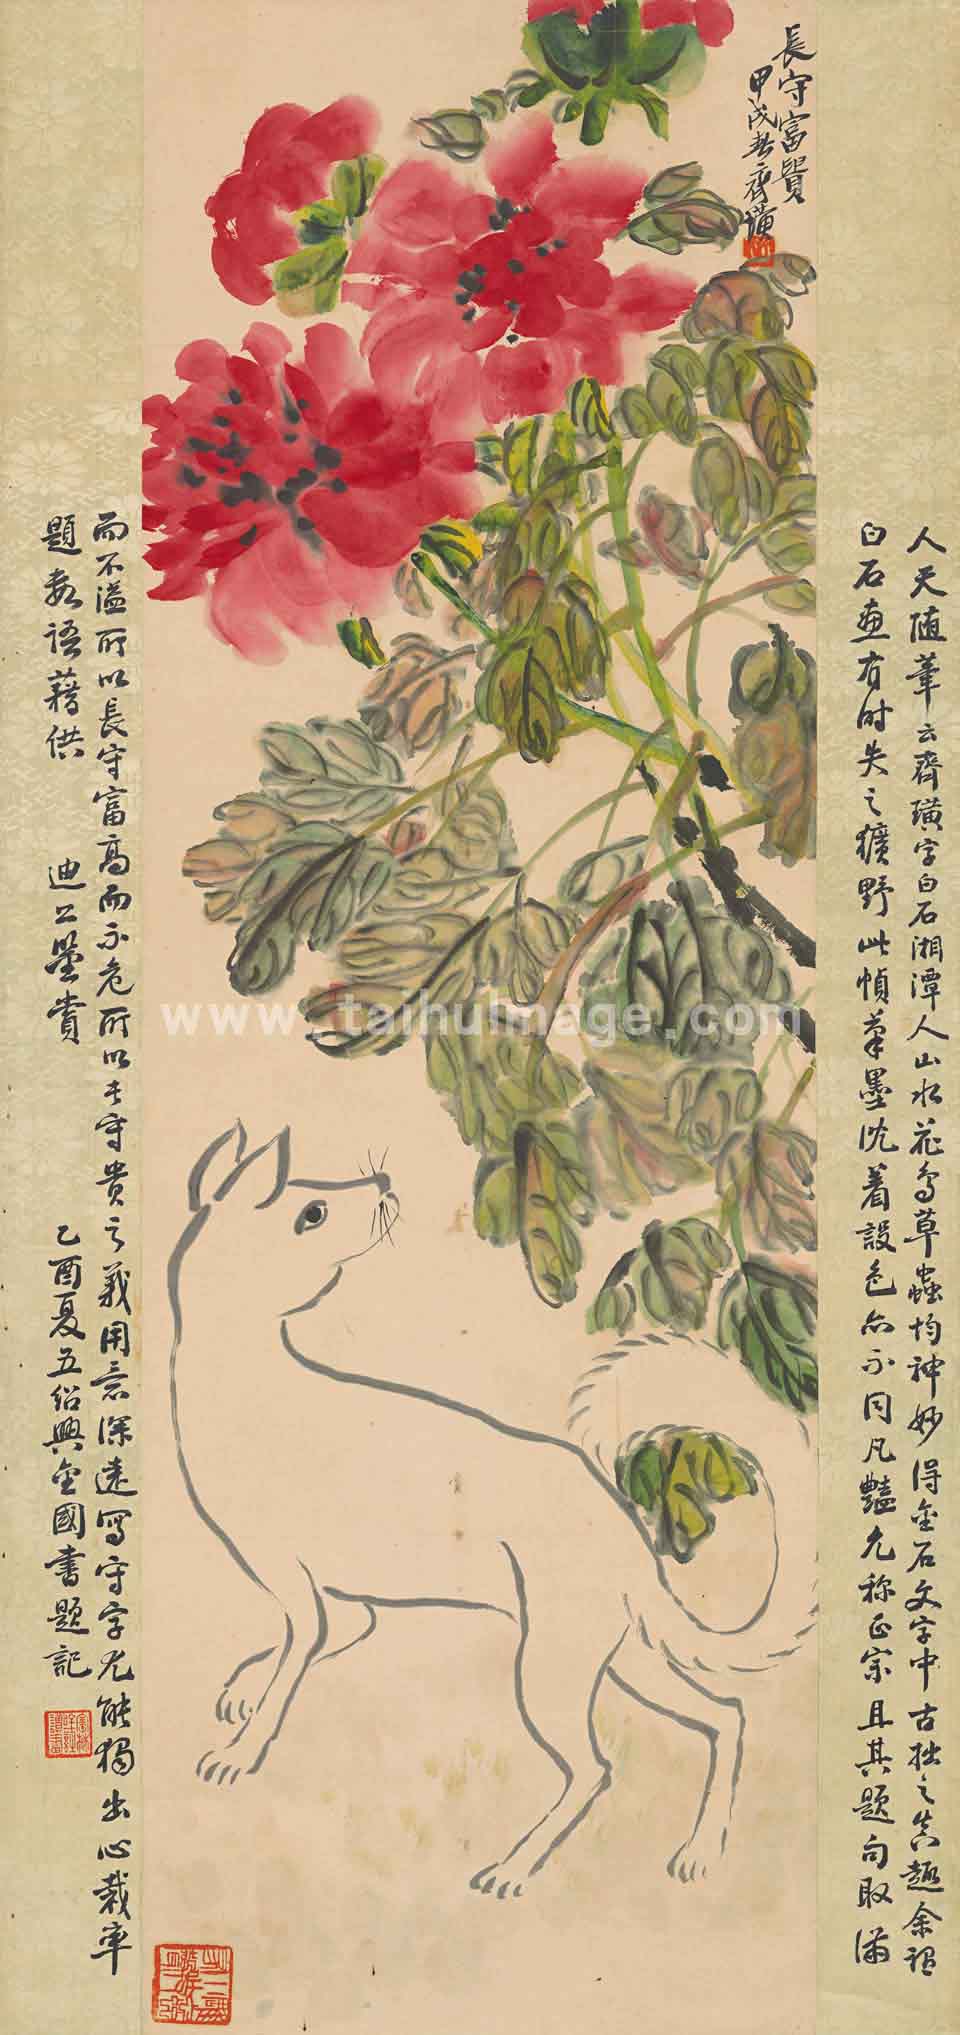 長守富貴
甲戌春齊璜
人天隨筆云齊璜字白石湘潭人山水花鳥草蟲均神妙得金石文字中古拙之真趣余視
白石画有時失之獷野此幀筆墨沈着設色亦不同凡豔允称正宗且其題句取滿
而不溢所以長守富高而不危所以長守貴之義用意深遠寫守字尤能獨出心裁率
題數語藉供　迪公鑒賞　乙酉夏五紹興金國書題記
www.taihuImage.com